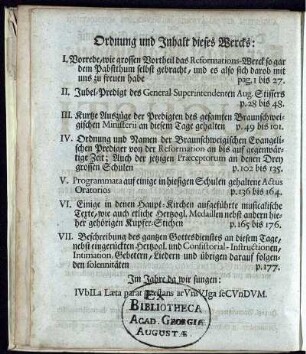 Ordnung und Inhalt dieses Wercks:
I. Vorrede, wie grossen Vortheil das Reformations-Werck so gar
dem Pabstthum selbst gebracht, und es also sich darob mit
uns zu freuen habe pag. 1 bis 27.
II. Jubel-Predigt des General Superintendenten Aug. Stissers
p. 28 bis 48.
III. Kurtze Auszüge der Predigten des gesamten Braunschwei-
gischen Ministerii an diesem Tage gehalten p. 49 bis 101.
IV. Ordnung und Namen der Braunschweigischen Evangeli-
schen Prediger von der Reformation an bis auf gegenwär-
tige Zeit; Auch der jetzigen Præceptorum an denen Drey
grossen Schulen p. 102 bis 135.
V. Programmata auf einige in hiesigen Schulen gehaltene Actus
Oratorios p. 136 bis 164.
VI. Einige in denen Haupt-Kirchen aufgeführte musicalische
Texte, wie auch etliche Hertzogl. Medaillen nebst andern hie-
her gehörigen Kupfer-Stichen p. 165 bis 176.
VII. Beschreibung des gantzen Gottesdienstes an diesem Tage,
nebst eingerückten Hertzogl. und Consistorial-Instructionen,
Intimation, Gebetern, Liedern und übrigen darauf folgen-
den solennitäten p. 177.
Im Jahre da wir sungen:
EX
BIBLIOTHECA
ACAD. GEORGIÆ
AUGUSTÆ.